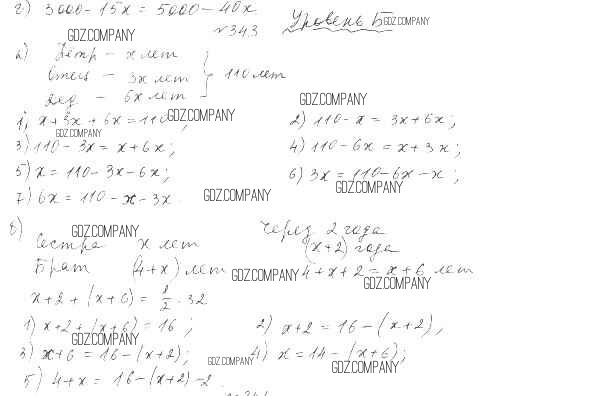 г) 3000 - 15x = 5000 - 40x
GDZ.COMPANY
Уровень Б GDZ.COMPANY
№ 343
а) Петр - x лет
Отец - 3x лет } 110 лет
дед - 6x лет
GDZ.COMPANY
1) x + 3x + 6x = 110; GDZ.COMPANY
2) 110 - x = 3x + 6x;
GDZ.COMPANY
3) 110 - 3x = x + 6x;
4) 110 - 6x = x + 3x;
5) x = 110 - 3x - 6x;
6) 3x = 110 - 6x - x;
GDZ.COMPANY
7) 6x = 110 - x - 3x
GDZ.COMPANY
б) GDZ.COMPANY
Через 2 года
Сестра x лет (x+2) года
Брат (4+x) лет GDZ.COMPANY 4+x+2 = x+6 лет
GDZ.COMPANY
x+2 + (x+6) = 1/2 · 32
1) x+2 + (x+6) = 16;
2) x+2 = 16 - (x+2),
GDZ.COMPANY
3) x+6 = 16 - (x+2);
GDZ.COMPANY
4) x = 14 - (x+6);
GDZ.COMPANY
5) 4+x = 16 - (x+2) - 2.